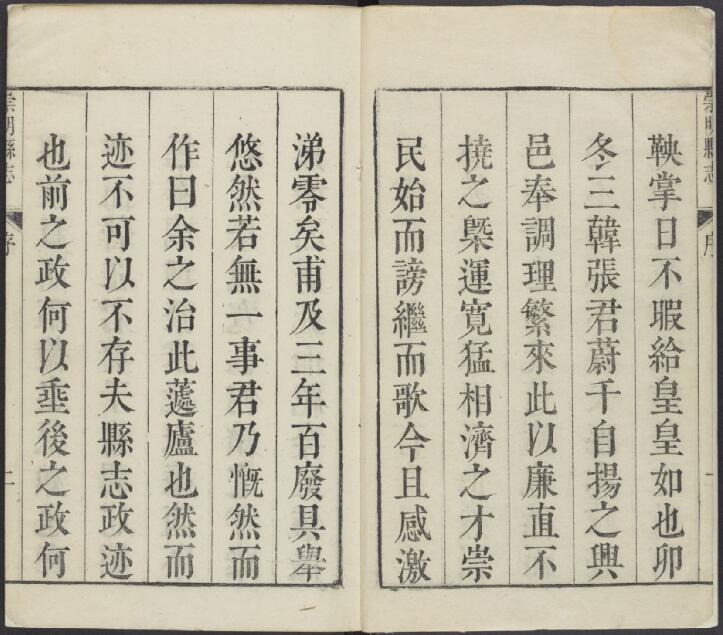 崇明縣志
序
一
鞅掌日不暇給皇皇如也卯
冬三韓張君蔚千自揚之興
邑奉調理繁來此以廉直不
撓之槩運寬猛相濟之才崇
民始而謗繼而歌今且感激
涕零矣甫及三年百廢具舉
悠然若無一事君乃慨然而
作曰余之治此蘧廬也然而
迹不可以不存夫縣志政迹
也前之政何以埀後之政何
崇明縣志
序
二